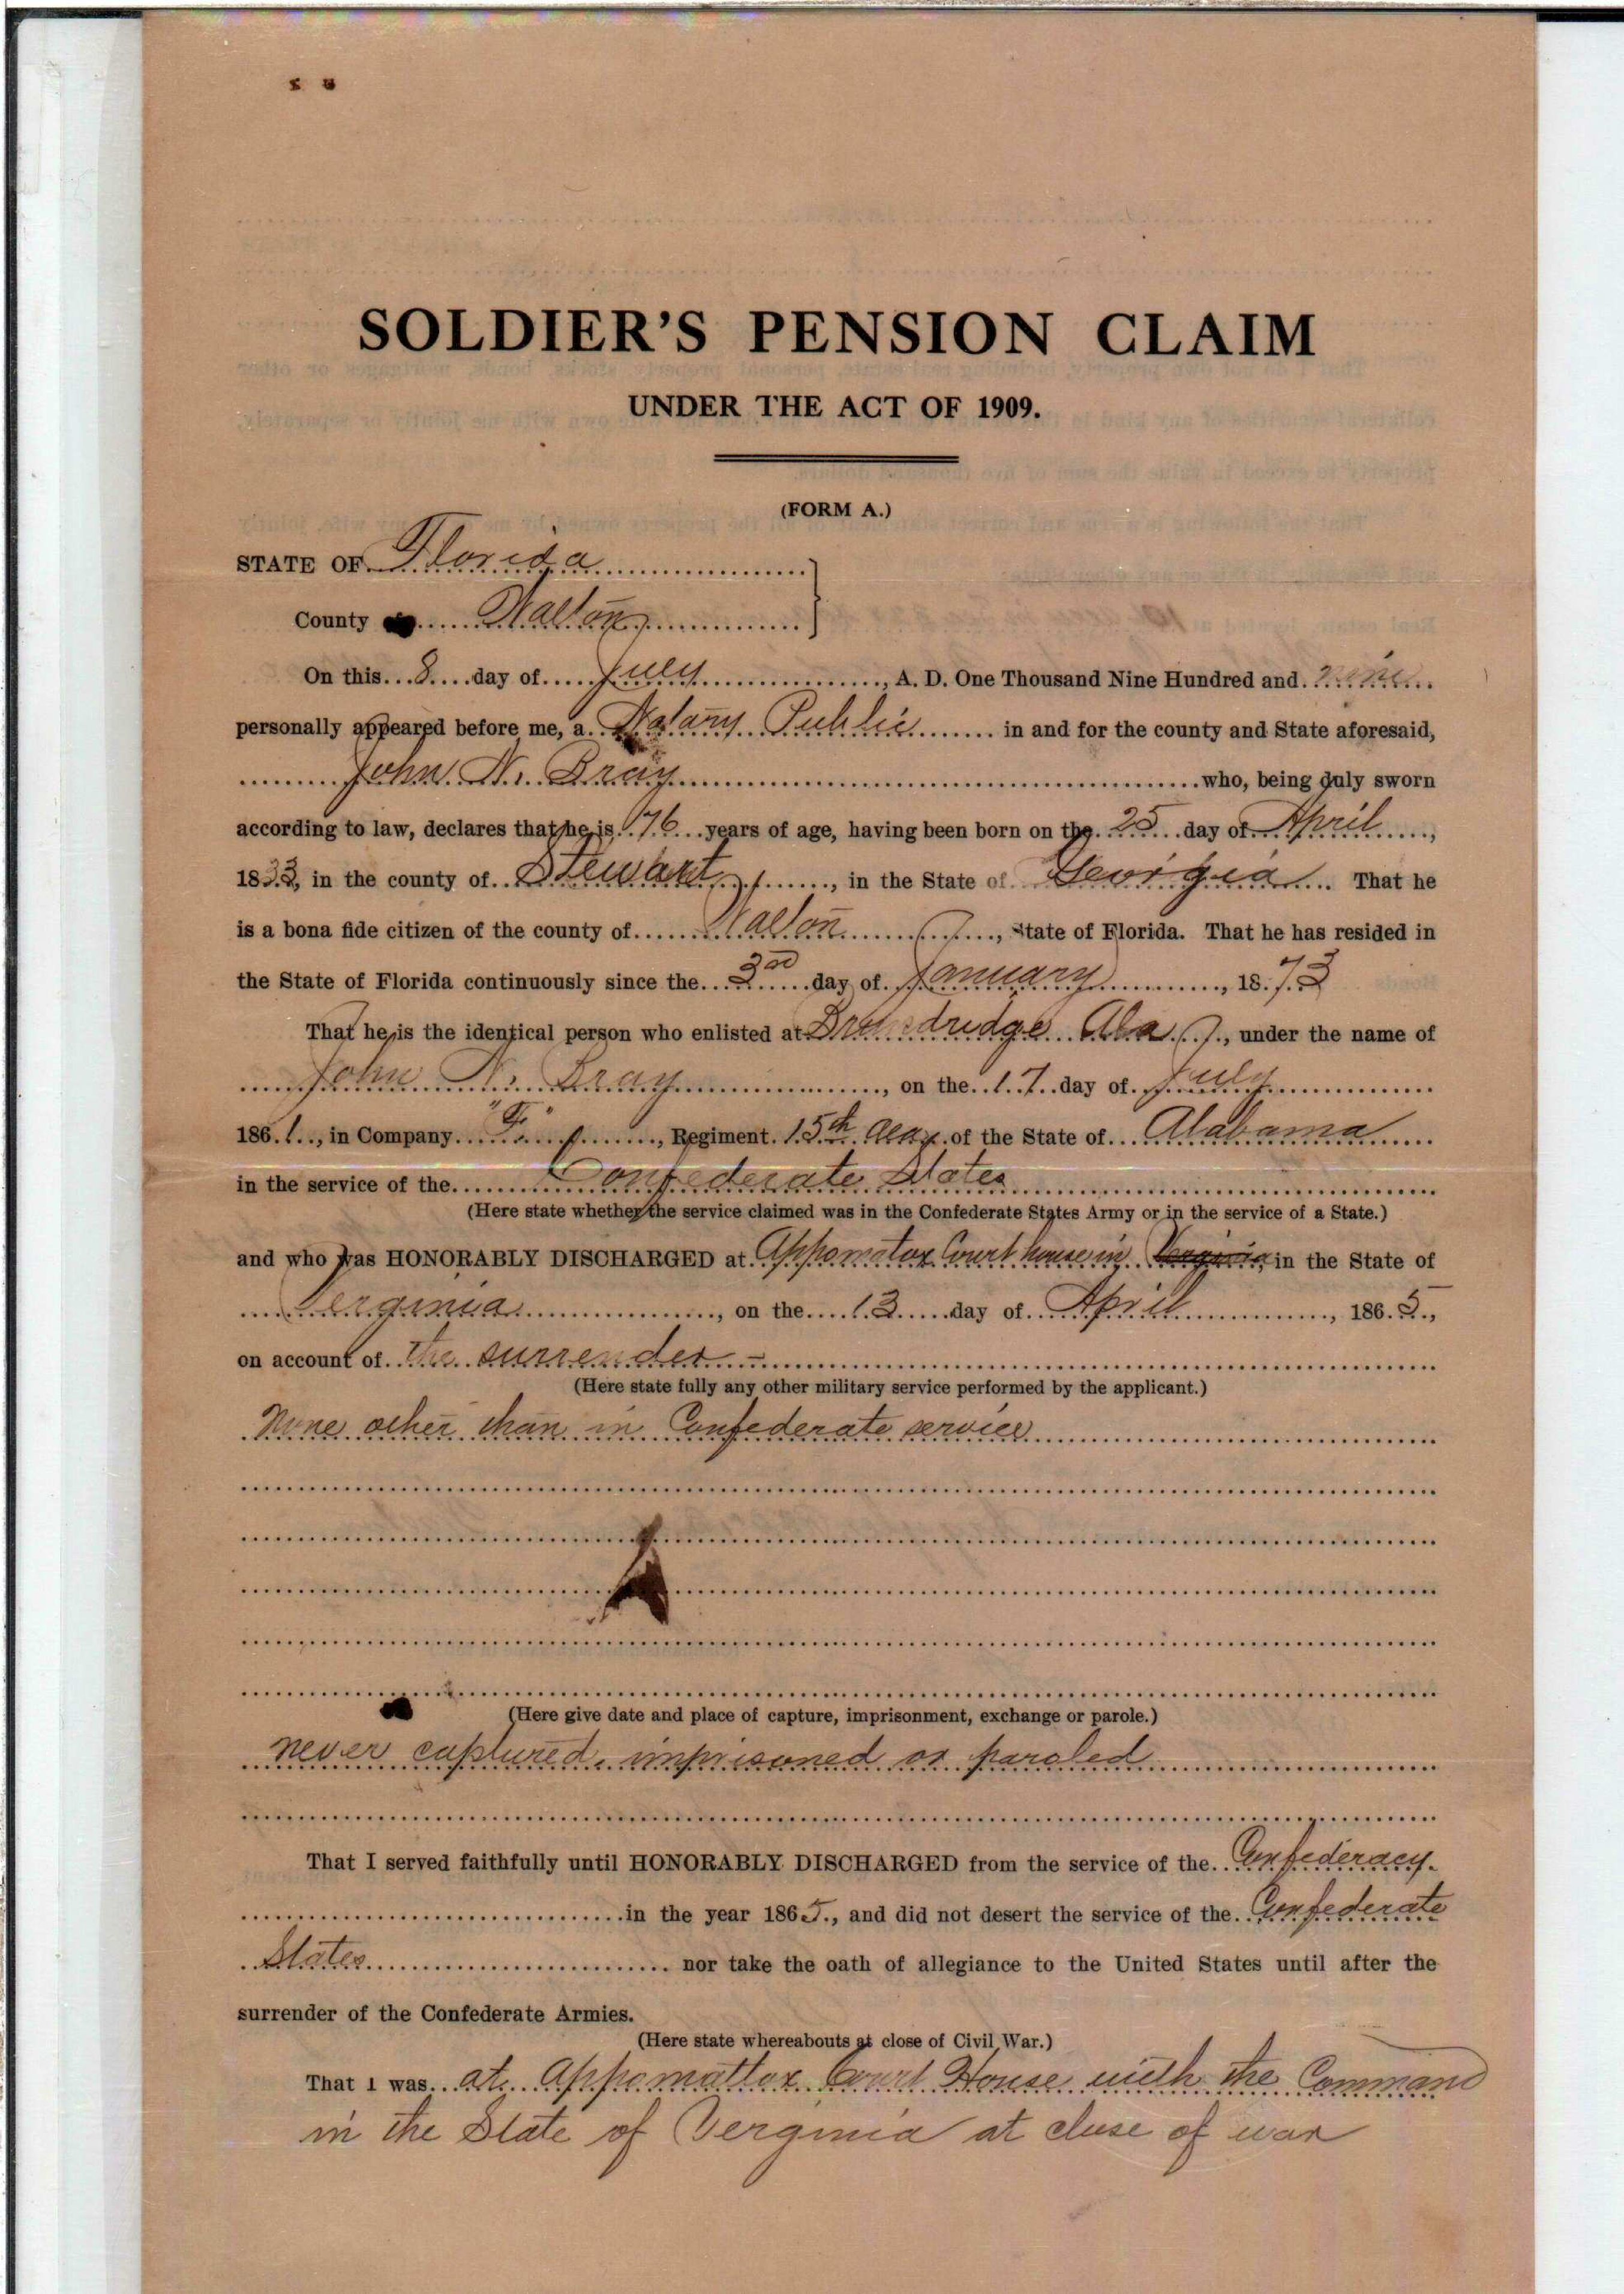 SOLDIER'S PENSION CLAIM
UNDER THE ACT OF 1909.
(FORM A.)
STATE OF Florida
County Walton
On this 8 day of July, A. D. One Thousand Nine Hundred and nine
personally appeared before me, a Notary Public in and for the county and State aforesaid,
John W. Bray who, being duly sworn
according to law, declares that he is 76 years of age, having been born on the 25 day of April,
1833, in the county of Stewart, in the State of Georgia. That he
is a bona fide citizen of the county of Walton, State of Florida. That he has resided in
the State of Florida continuously since the 3rd day of January, 1873
That he is the identical person who enlisted at Brundridge Ala, under the name of
John W. Bray, on the 17 day of July
1861, in Company "F", Regiment 15th Ala of the State of Alabama
in the service of the Confederate States
(Here state whether the service claimed was in the Confederate States Army or in the service of a State.)
and who was HONORABLY DISCHARGED at Appomatox Court house in Verginia, in the State of
Verginia, on the 13 day of April, 1865,
on account of the surrender -
(Here state fully any other military service performed by the applicant.)
None other than in Confederate service
(Here give date and place of capture, imprisonment, exchange or parole.)
never captured, imprisoned or paroled
That I served faithfully until HONORABLY DISCHARGED from the service of the Confederacy
in the year 1865, and did not desert the service of the Confederate
States nor take the oath of allegiance to the United States until after the
surrender of the Confederate Armies.
(Here state whereabouts at close of Civil War.)
That I was at Appomattox Court House with the Command
in the State of Verginia at close of war